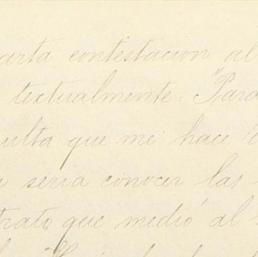 arta contestacion al
textualmente. "Para
ulta que me hace
seria conocer las
trato que medió al